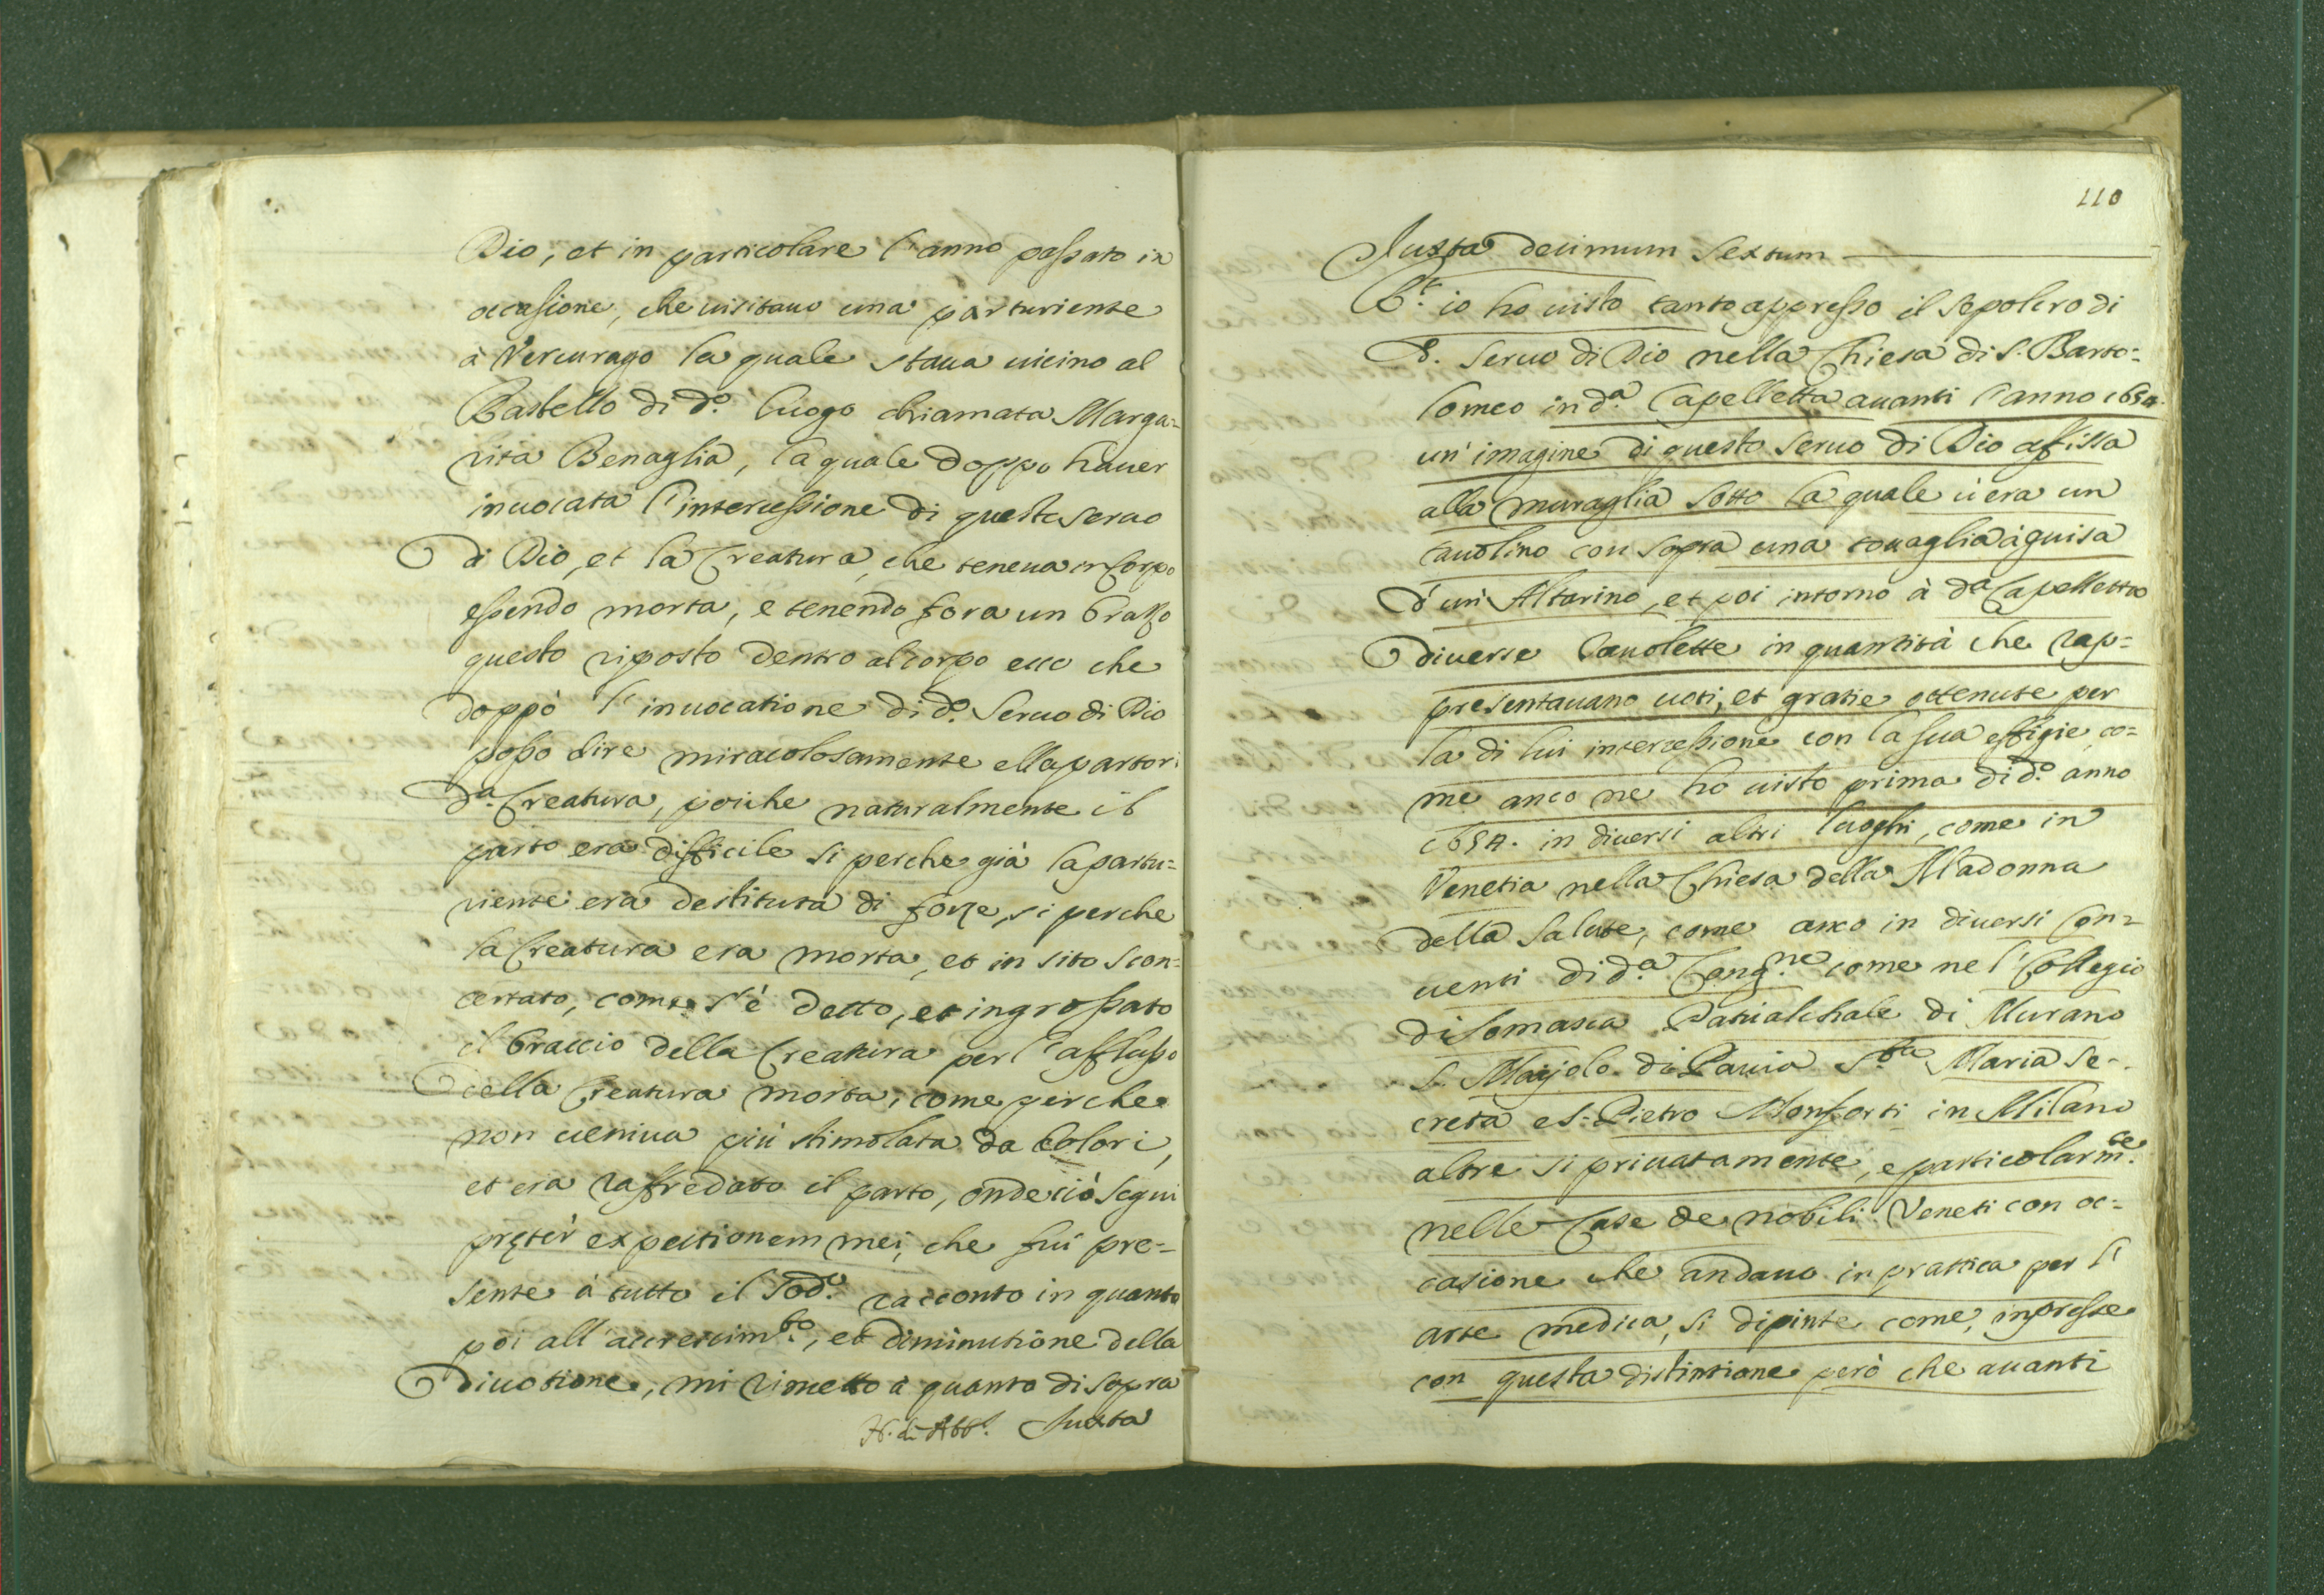 Dio, et in particolare l'anno passato in
occasione, che uisitauo una parturiente
à Vercurago la quale staua uicino al
Castello di d.º luogo chiamata Marga=
rita Benaglia, la quale doppo hauer
inuocata l'intercessione di questo seruo
di Dio, et la Creatura, che teneua in Corpo
essendo morta, e tenendo fora un brazo
questo riposto dentro al corpo ecco che
doppò l'inuocatione di d.º Seruo di Dio
posso dire miracolosamente ella partori
d.ª Creatura, poiche naturalmente il
parto era difficile si perche già la partu=
riente era destituta di forze, si perche
la Creatura era morta, et in sito scon=
certato, come s'è detto, et ingrossato
il braccio della Creatura per l'afflusso
della Creatura morta, come perche
non ueniua più stimolata da dolori,
et era raffredato il parto, onde ciò segui
pręter expectionem mei, che fui pre=
sente à tutto il sod.º racconto in quanto
poi all'accrescim.to, et diminutione della
diuotione, mi rimetto à quanto di sopra
Juxta
110
Juxta decimum sextum
R.t io ho uisto tanto appresso il sepolcro di
d. seruo di Dio nella Chiesa di S. Barto=
lomeo in d.ª Capelletta auanti l'anno 1654.
un'imagine di questo seruo di Dio affissa
alla muraglia sotto la quale u'era un
tauolino con sopra una touaglia à guisa
d'un Altarino, et poi intorno à d.ª Capelletta
diuerse tauolette in quantità che rap=
presentauano uoti, et gratie ottenute per
la di lui intercessione con la sua effigie, co=
me anco ne ho uisto prima di d.º anno
1654. in diuersi altri luoghi, come in
Venetia nella Chiesa della Madonna
della Salute, come anco in diuersi Con=
uenti di d.ª Cong.ne come nel Collegio
di Somasca Patriarchale di Murano
S. Maijolo di Pauia S.ta Maria Se=
creta e S. Pietro Monforti in Milano
altre si priuatamente, e particolarm.te
nelle Case de nobili Veneti con oc=
casione che andauo in prattica per l'
arte medica, si dipinte come, impresse
con questa distintione però che auanti